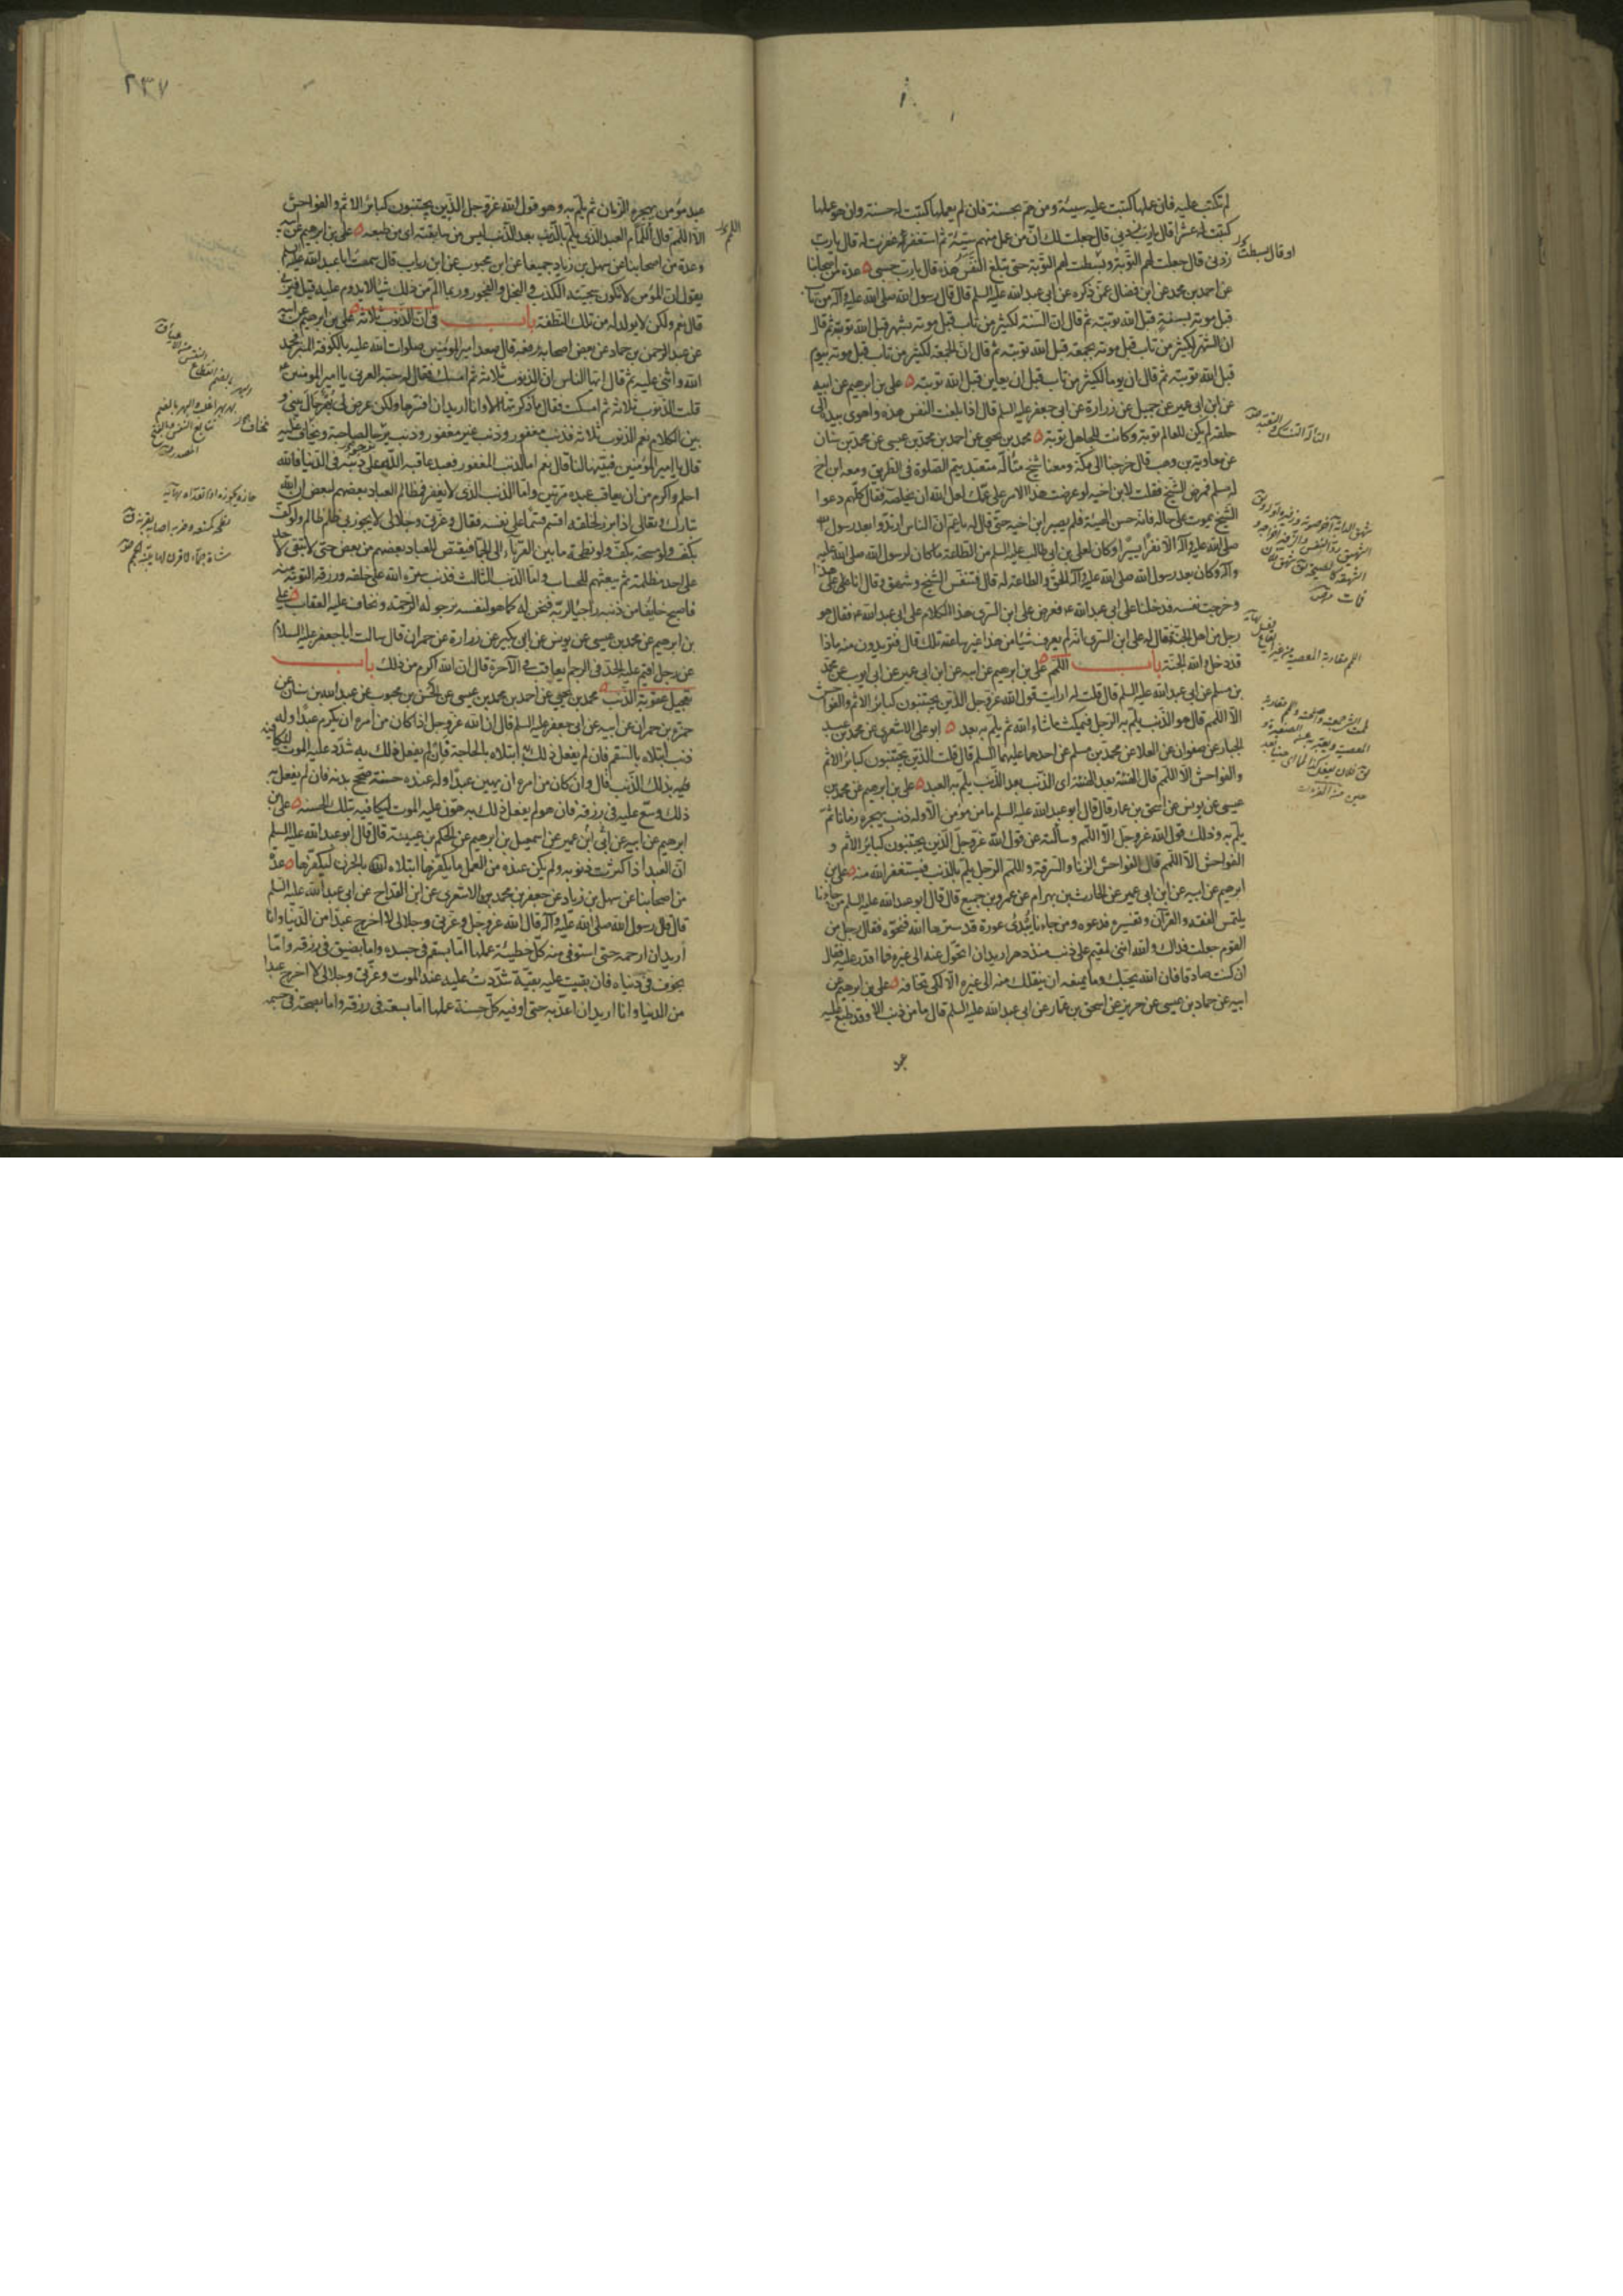 لم تكتب عليه فان عملها كتبت عليه سيئة ومن هم بحسنة فان لم يعملها كتبت له حسنة وان هو عملها
كتبت له عشرا قال يا رب زدني قال جعلت لك ان من عمل منهم سيئة ثم استغفر غفرت له قال يا رب
زدني قال جعلت لهم التوبة وبسطت لهم التوبة حتى تبلغ النفس هذه قال يا رب حسبي عدة من اصحابنا
عن احمد بن محمد عن ابن فضال عمن ذكره عن ابي عبد الله عليه السلم قال قال رسول الله صلى الله عليه وآله من تاب
قبل موته بسنة قبل الله توبته ثم قال ان السنة لكثير من تاب قبل موته بشهر قبل الله توبته ثم قال
ان الشهر لكثير من تاب قبل موته بجمعة قبل الله توبته ثم قال ان الجمعة لكثير من تاب قبل موته بيوم
قبل الله توبته ثم قال ان يوما لكثير من تاب قبل ان يعاين قبل الله توبته علي بن ابرهيم عن ابيه
عن ابن ابي عمير عن جميل عن زرارة عن ابي جعفر عليه السلم قال اذا بلغت النفس هذه واهوى بيده الى
حلقه لم يكن للعالم توبة وكانت للجاهل توبة محمد بن يحيى عن احمد بن محمد بن عيسى عن محمد بن سنان
عن معاوية بن وهب قال خرجنا الى مكة ومعنا شيخ متأله متعبد يتم الصلوة في الطريق ومعه ابن اخ
له مسلم فمرض الشيخ فقلت لابن اخيه لو عرضت هذا الامر على عمك لعل الله ان يخلصه فقال كلهم دعوا
الشيخ يموت على حاله فانه حسن الهيئة فلم يصبر ابن اخيه حتى قال له يا عم ان الناس ارتدوا بعد رسول الله
صلى الله عليه وآله الا نفرا يسيرا وكان لعلي بن ابي طالب عليه السلم من الطاعة ما كان لرسول الله صلى الله عليه
وآله وكان بعد رسول الله صلى الله عليه وآله الحق والطاعة له قال فتنفس الشيخ وشهق وقال انا على هذا
وخرجت نفسه فدخلنا على ابي عبد الله ع فعرض علي ابن السري هذا الكلام على ابي عبد الله ع فقال هو
رجل من اهل الجنة فقال له علي ابن السري انه لم يعرف شيئا من هذا غير ساعته تلك قال فتريدون منه ماذا
قد دخل والله الجنة باب اللمم علي بن ابرهيم عن ابيه عن ابن ابي عمير عن ابي ايوب عن محمد
بن مسلم عن ابي عبد الله عليه السلم قال قلت له ارايت قول الله عز وجل الذين يجتنبون كبائر الاثم والفواحش
الا اللمم قال هو الذنب يلم به الرجل فيمكث ما شاء الله ثم يلم به بعد ابو علي الاشعري عن محمد بن عبد
الجبار عن صفوان عن العلا عن محمد بن مسلم عن احدهما عليهما السلم قال قلت الذين يجتنبون كبائر الاثم
والفواحش الا اللمم قال الهنئة بعد الهنئة اى الذنب بعد الذنب يلم به العبد علي بن ابرهيم عن محمد بن
عيسى عن يونس عن اسحق بن عمار قال قال ابو عبد الله عليه السلم ما من مؤمن الا وله ذنب يهجره زمانا ثم
يلم به وذلك قول الله عز وجل الا اللمم وسألته عن قول الله عز وجل الذين يجتنبون كبائر الاثم و
الفواحش الا اللمم قال الفواحش الزنا والسرقة واللمم الرجل يلم بالذنب فيستغفر الله منه علي بن
ابرهيم عن ابيه عن ابن ابي عمير عن الحارث بن بهرام عن عمرو بن جميع قال قال ابو عبد الله عليه السلم من جاءنا
يلتمس الفقه والقرآن وتفسيره فدعوه ومن جاءنا يبدي عورة قد سترها الله فنحوه فقال رجل من
القوم جعلت فداك والله انني لمقيم على ذنب منذ دهر اريد ان اتحول عنه الى غيره فما اقدر عليه فقال
ان كنت صادقا فان الله يحبك وما يمنعه ان ينقلك منه الى غيره الا لكي تخافه علي بن ابرهيم عن
ابيه عن حماد بن عيسى عن حريز عن اسحق بن عمار عن ابي عبد الله عليه السلم قال ما من ذنب الا وقد طبع عليه
او قال بسطت
٢٣٧
عبد مؤمن يهجره الزمان ثم يلم به وهو قول الله عز وجل الذين يجتنبون كبائر الاثم والفواحش
الا اللمم قال اللمام العبد الذي يلم بالذنب بعد الذنب ليس من سليقته اى من طبيعته علي بن ابرهيم عن ابيه
وعدة من اصحابنا عن سهل بن زياد جميعا عن ابن محبوب عن ابن رياب قال سمعت ابا عبد الله عليه السلم
يقول ان المؤمن لا تكون سجيته الكذب والبخل والفجور وربما الم من ذلك شيئا لا يدوم عليه قيل فيزني
قال نعم ولكن لا يولد له من تلك النطفة باب في ان الذنوب ثلاثة علي بن ابرهيم عن ابيه
عن عبد الرحمن بن حماد عن بعض اصحابه رفعه قال صعد امير المؤمنين صلوات الله عليه بالكوفة المنبر فحمد
الله واثنى عليه ثم قال ايها الناس ان الذنوب ثلاثة ثم امسك فقال له حبة العرني يا امير المؤمنين
قلت الذنوب ثلاثة ثم امسكت فقال ما ذكرتها الا وانا اريد ان افسرها ولكن عرض لي بهر حال بيني و
بين الكلام نعم الذنوب ثلاثة فذنب مغفور وذنب غير مغفور وذنب نرجو لصاحبه ونخاف عليه
قال يا امير المؤمنين فبينها لنا قال نعم اما الذنب المغفور فعبد عاقبه الله على ذنبه في الدنيا فالله
احلم واكرم من ان يعاقب عبده مرتين واما الذنب الذي لا يغفر فمظالم العباد بعضهم لبعض ان الله
تبارك وتعالى اذا برز لخلقه اقسم قسما على نفسه فقال وعزتي وجلالي لا يجوزني ظلم ظالم ولو كف
بكف ولو مسحة بكف ولو نطحة ما بين القرناء الى الجماء فيقتص للعباد بعضهم من بعض حتى لا تبقى لاحد
على احد مظلمة ثم يبعثهم للحساب واما الذنب الثالث فذنب ستره الله على خلقه ورزقه التوبة منه
فاصبح خايفا من ذنبه راجيا لربه فنحن له كما هو لنفسه نرجو له الرحمة ونخاف عليه العقاب علي
بن ابرهيم عن محمد بن عيسى عن يونس عن ابن بكير عن زرارة عن حمران قال سالت ابا جعفر عليه السلام
عن رجل اقيم عليه الحد في الرجم يعاقب في الآخرة قال ان الله اكرم من ذلك باب
تعجيل عقوبة الذنب محمد بن يحيى عن احمد بن محمد بن عيسى عن الحسن بن محبوب عن عبد الله بن سنان عن
حمزة بن حمران عن ابيه عن ابي جعفر عليه السلم قال ان الله عز وجل اذا كان من امره ان يكرم عبدا وله
ذنب ابتلاه بالسقم فان لم يفعل ذلك به ابتلاه بالحاجة فان لم يفعل ذلك به شدد عليه الموت ليكافيه
بذلك الذنب قال وان كان من امره ان يهين عبدا وله عنده حسنة صحح بدنه فان لم يفعل به
ذلك وسع عليه في رزقه فان هو لم يفعل ذلك به هون عليه الموت ليكافيه بتلك الحسنة علي بن
ابرهيم عن ابيه عن ابن ابي عمير عن اسمعيل بن ابرهيم عن الحكم بن عيينة قال قال ابو عبد الله عليه السلم
ان العبد اذا كثرت ذنوبه ولم يكن عنده من العمل ما يكفرها ابتلاه الله بالحزن ليكفرها عدة
من اصحابنا عن سهل بن زياد عن جعفر بن محمد الاشعري عن ابن القداح عن ابي عبد الله عليه السلم
قال قال رسول الله صلى الله عليه وآله قال الله عز وجل وعزتي وجلالي لا اخرج عبدا من الدنيا وانا
اريد ان ارحمه حتى استوفي منه كل خطيئة عملها اما بسقم في جسده واما بضيق في رزقه واما
بخوف في دنياه فان بقيت عليه بقية شددت عليه عند الموت وعزتي وجلالي لا اخرج عبدا
من الدنيا وانا اريد ان اعذبه حتى اوفيه كل حسنة عملها اما بسعة في رزقه واما بصحة في جسمه